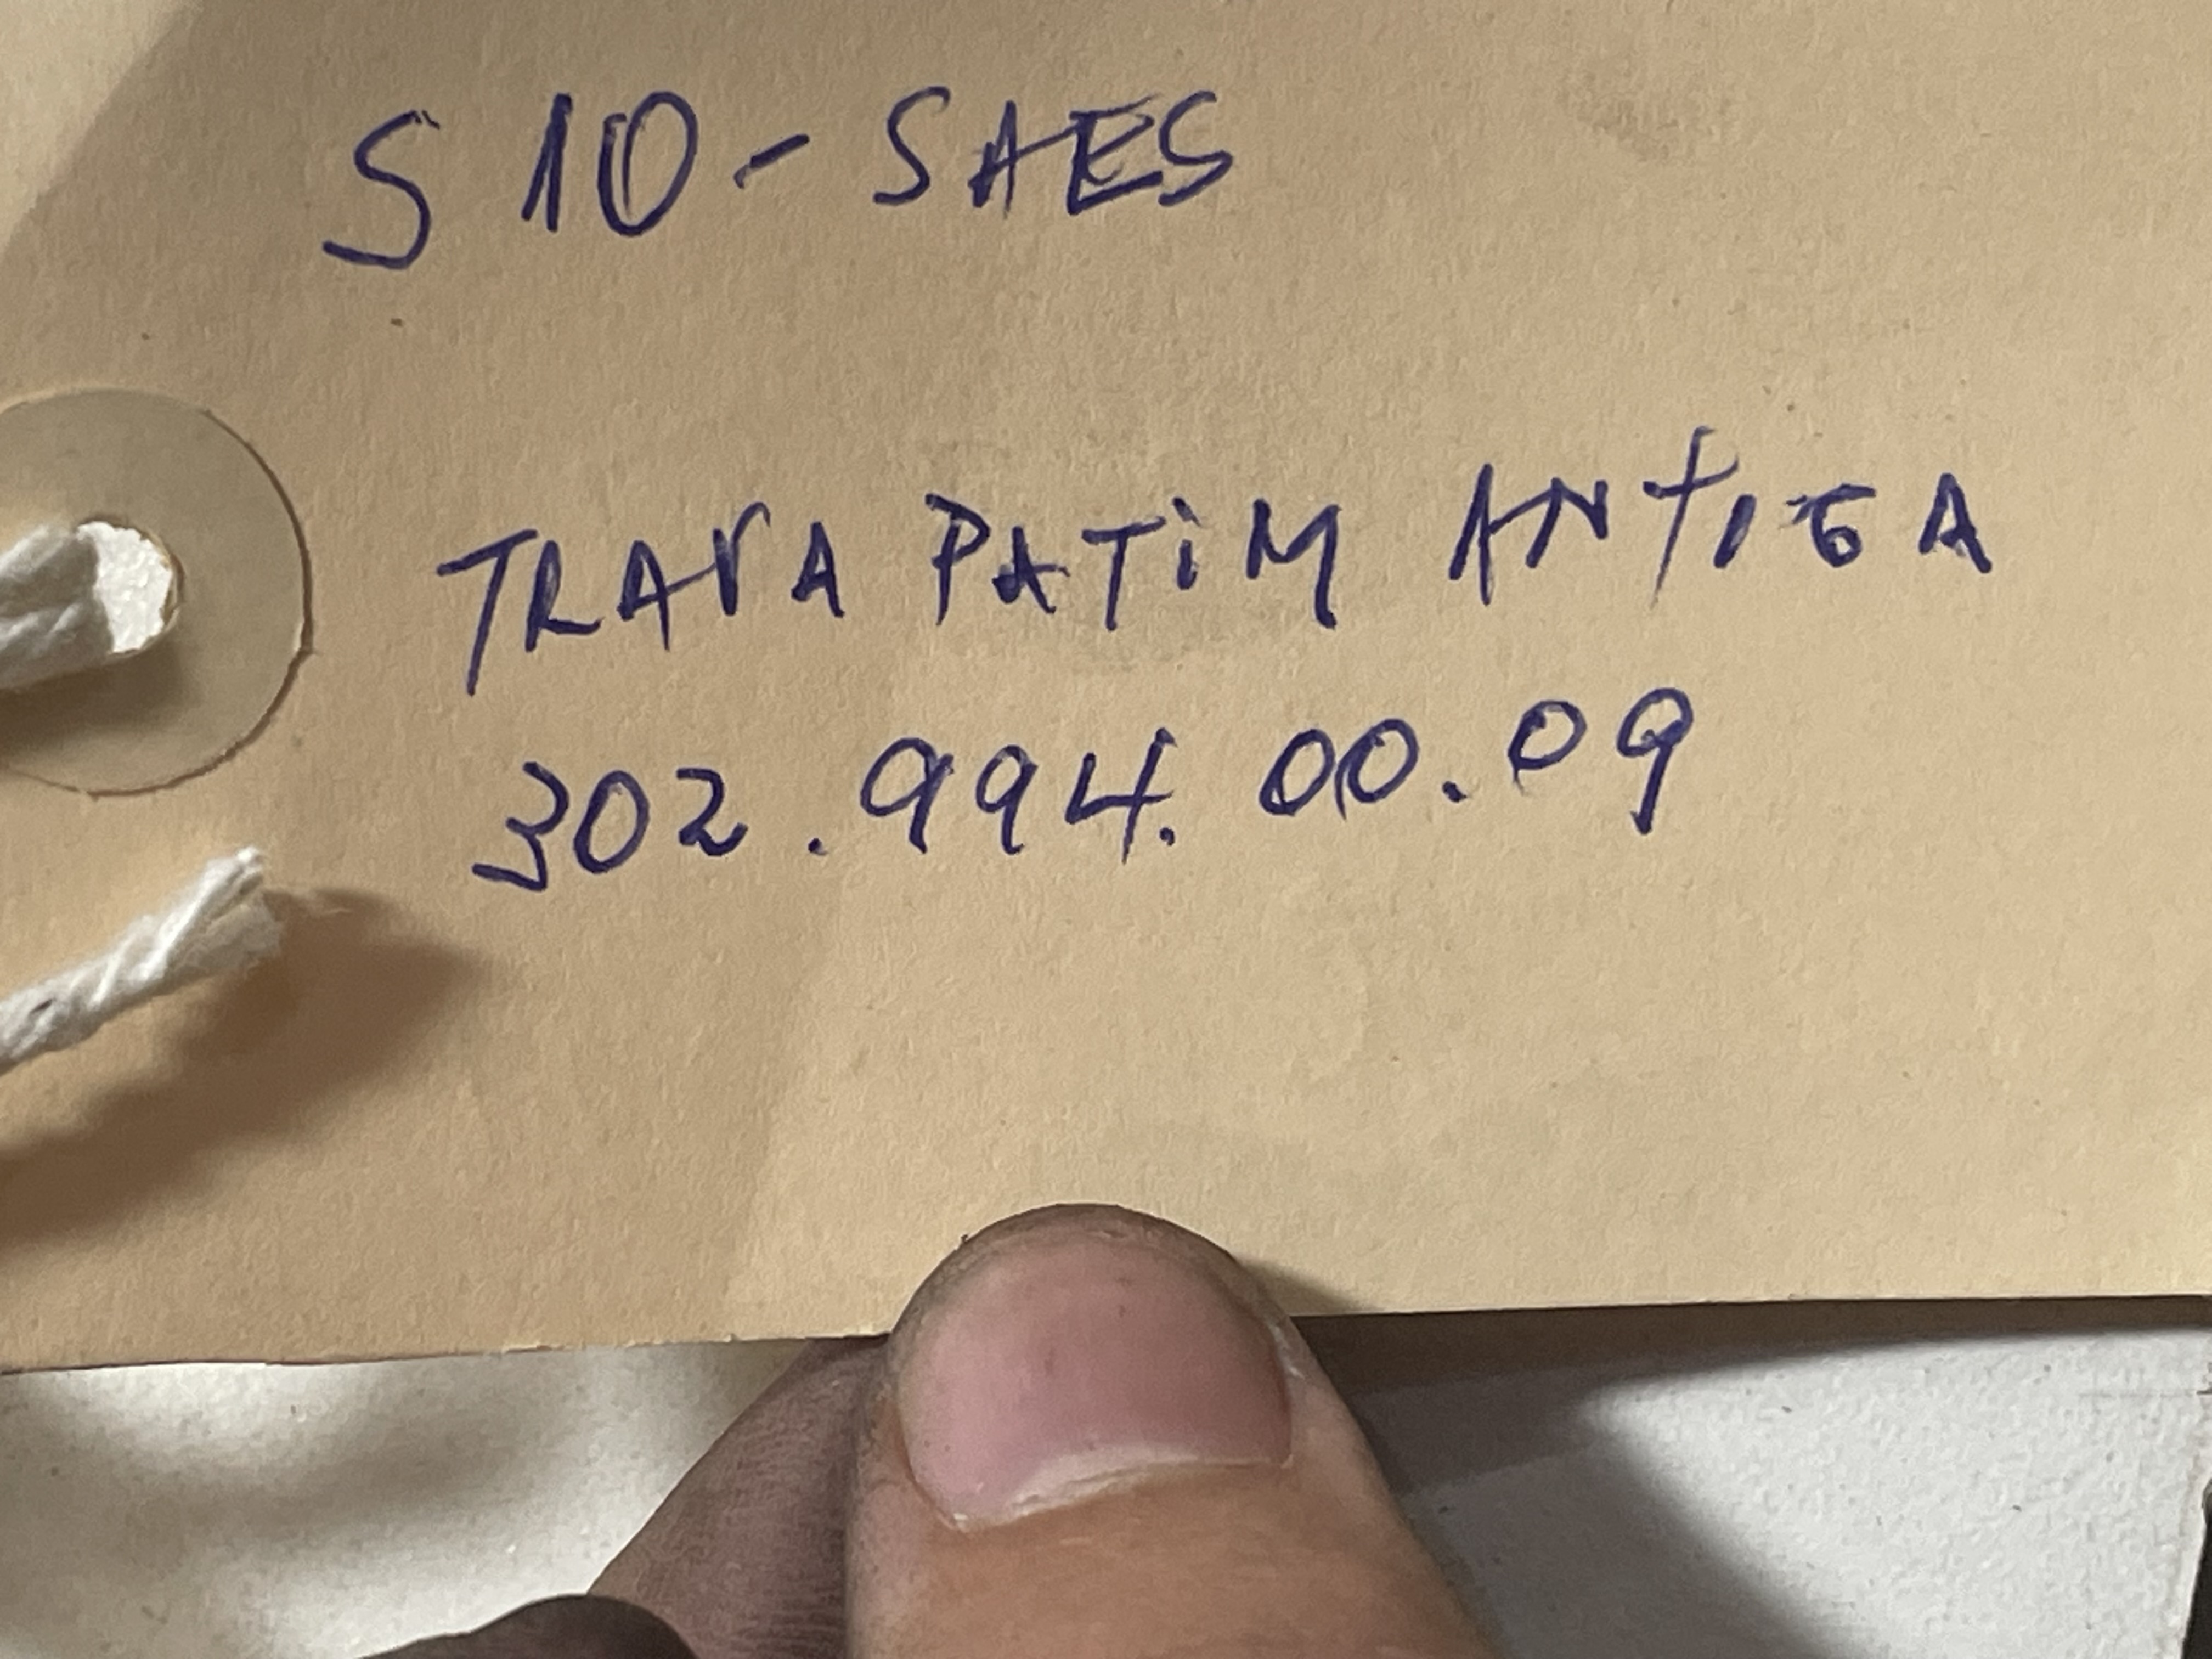 S10 - SAES
TRAVA PATiM ANTIGA
302.994.00.09